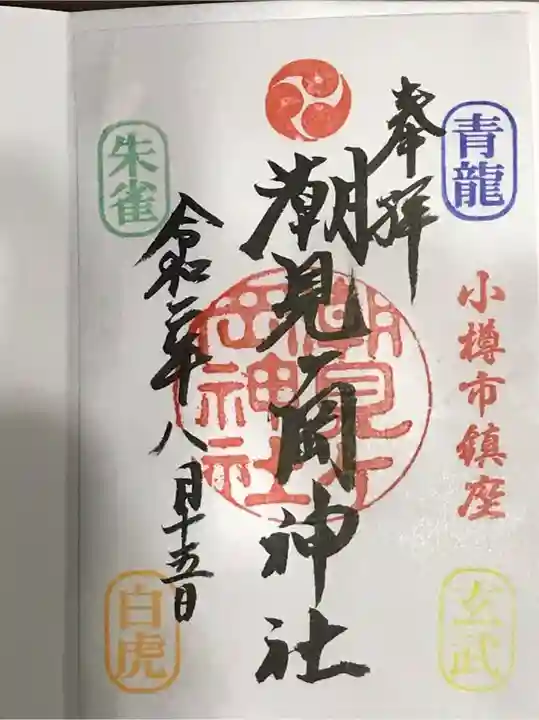 青龍
奉拝
小樽市鎮座
玄武
潮見ヶ岡神社
潮見ヶ
岡神社
朱雀
令和二年八月十五日
白虎